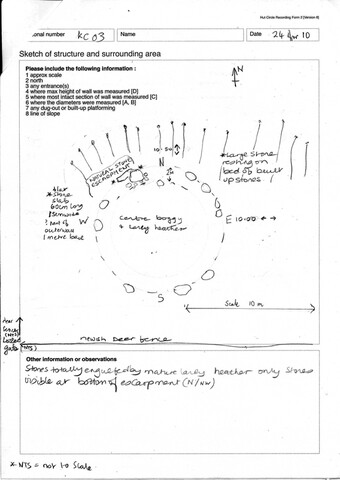 Hut Circle Recording Form 2 [Version B]
onal number KC03
Name
Date 24 Apr 10
Sketch of structure and surrounding area
Please include the following information :
1 approx scale
2 north
3 any entrance(s)
4 where max height of wall was measured [D]
5 where most intact section of wall was measured [C]
6 where the diameters were measured [A, B]
7 any dug-out or built-up platforming
8 line of slope
N
NATURAL STONE
ESCARPMENT
N
* Large Stone
resting on
bed of built
up stones
* Stone
slab
60cm long
? part of
outer wall
1 metre back
W
centre boggy
+ heather
E 10.00
S
Scale 10 m
gate (NTS)
newish Deer fence
Other information or observations
Stones totally engulfed by mature heather only stones
visible at bottom of escarpment (N/NW)
* NTS = not to Scale